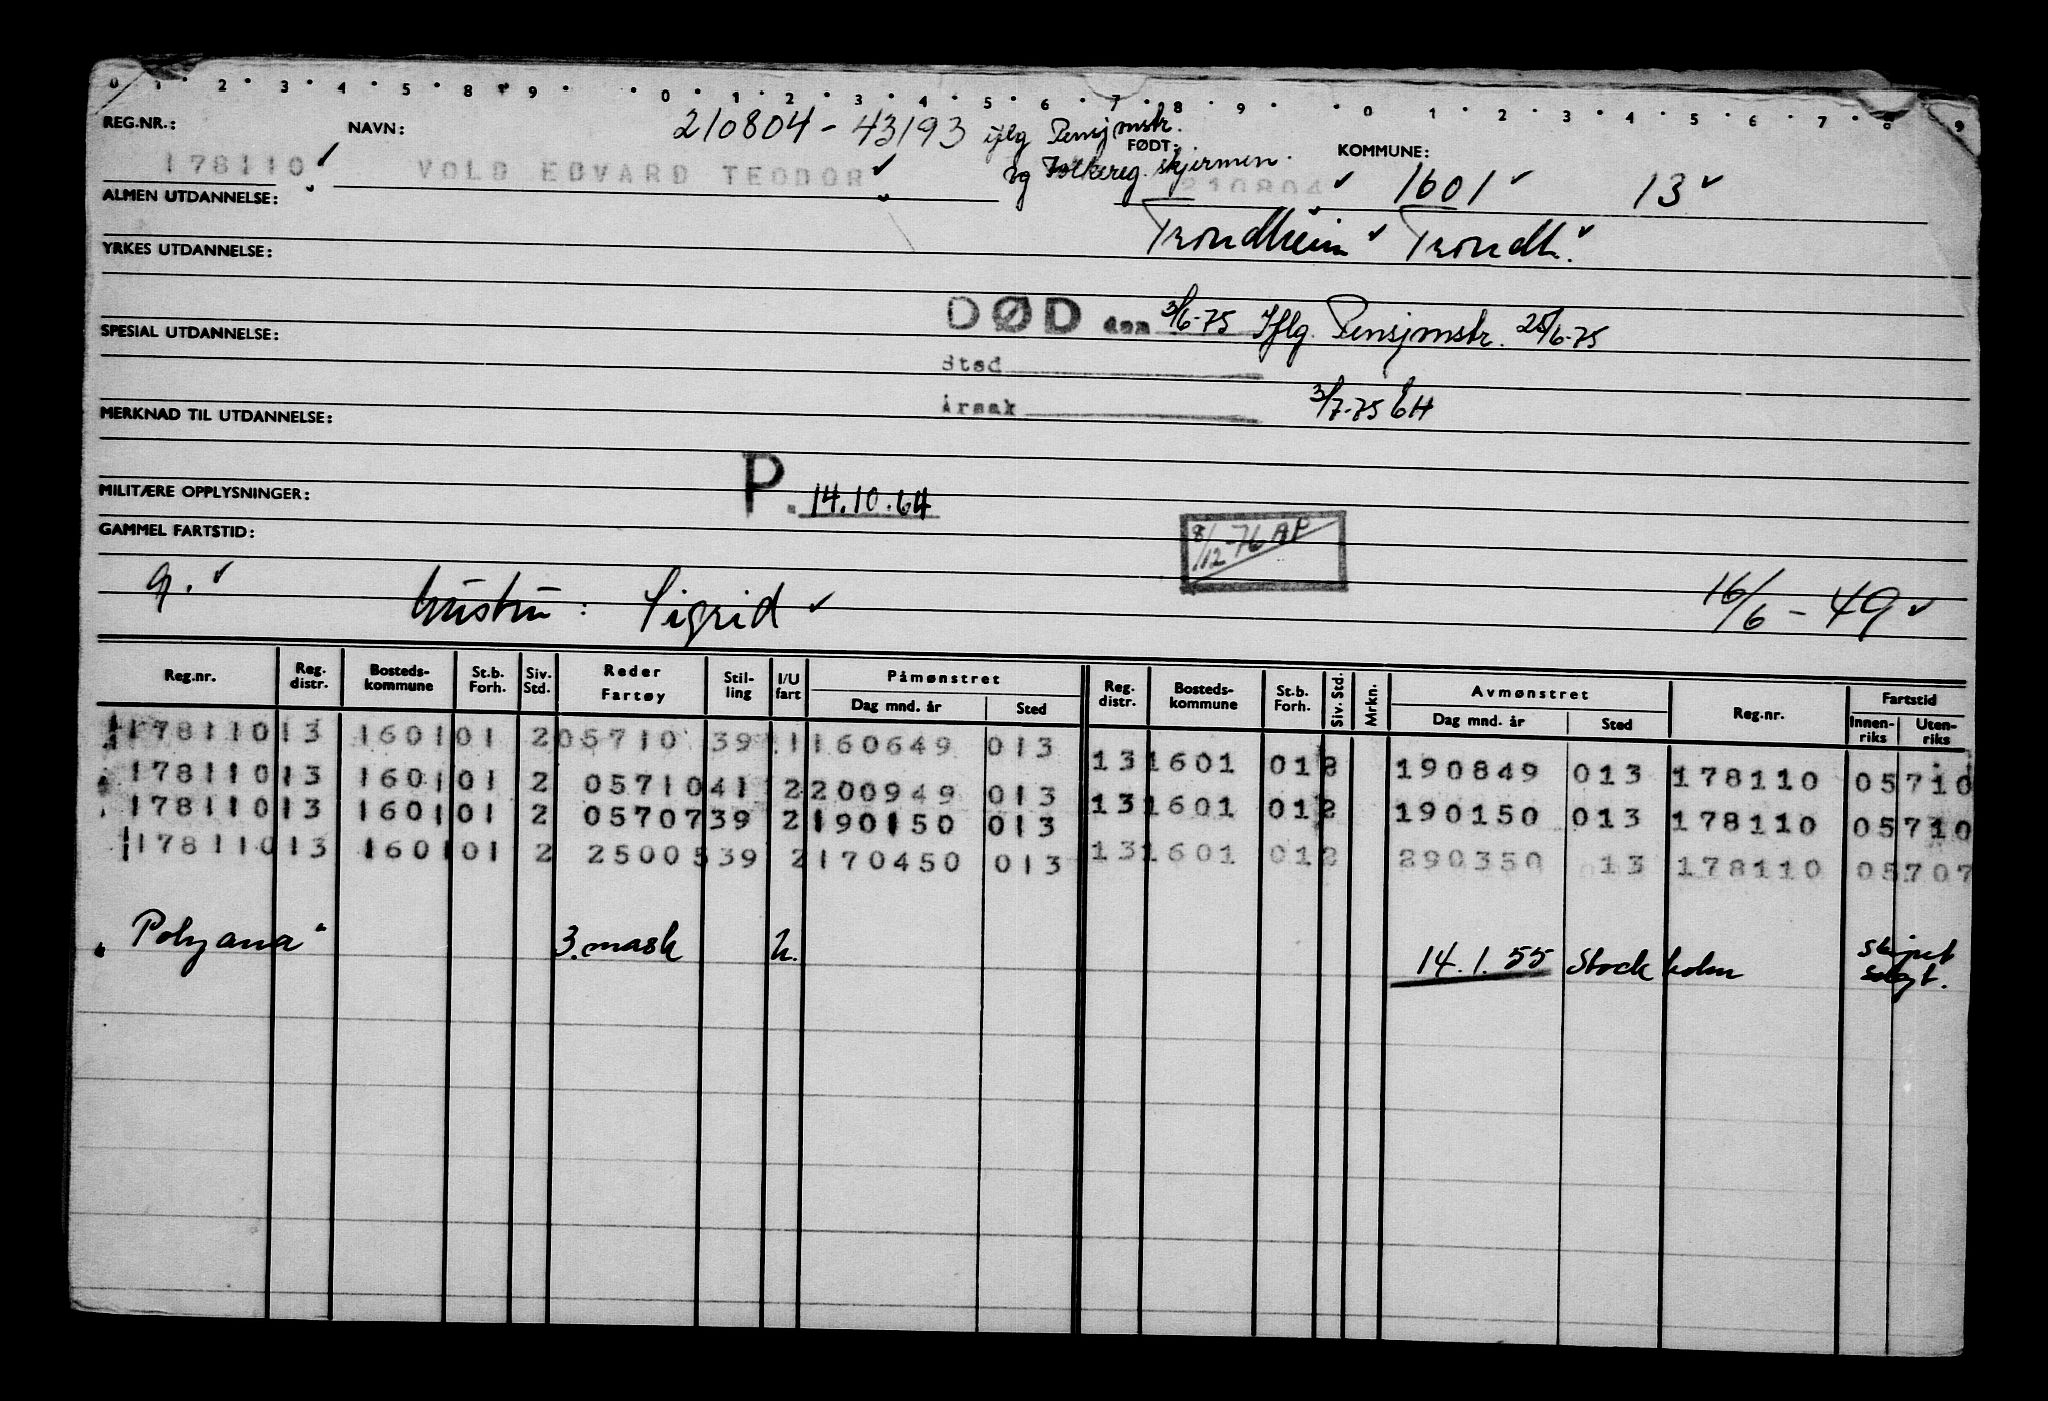 0 1 2 3 4 5 8 9 0 1 2 3 4 5 6 7 8 9 0 1 2 3 4 5 6 7 8 9
REG.NR.: NAVN: 210804-43193 iflg Pensjmstr. FØDT: KOMMUNE:
178110 VOLD EDVARD TEODOR og Folkereg. skjermen. 210804 1601 13
ALMEN UTDANNELSE:
Trondheim Trondh.
YRKES UTDANNELSE:
DØD den 3/6-75 Iflg. Pensjmstr. 25/6-75
SPESIAL UTDANNELSE:
Sted
Årsak 3/7-75 EH
MERKNAD TIL UTDANNELSE:
MILITÆRE OPPLYSNINGER: P. 14.10.64
GAMMEL FARTSTID: 8/12-76 AP
g. hustru: Sigrid 16/6-49
Reg.nr. Reg. distr. Bosteds-kommune St.b. Forh. Siv. Std. Reder Fartøy Stil-ling I/U fart Påmønstret Dag mnd. år Sted Reg. distr. Bosteds-kommune St.b. Forh. Siv. Std. Mrkn. Avmønstret Dag mnd. år Sted Reg.nr. Fartstid Innen-riks Uten-riks
178110 13 1601 01 2 05710 39 1 160649 013 13 1601 01 2 190849 013 178110 05710
178110 13 1601 01 2 05710 41 2 200949 013 13 1601 01 2 190150 013 178110 05710
178110 13 1601 01 2 05707 39 2 190150 013 13 1601 01 2 290350 13 178110 05707
178110 13 1601 01 2 25005 39 2 170450 013
"Polyana" 3. mask U. 14.1.55 Stockholm skipet solgt.